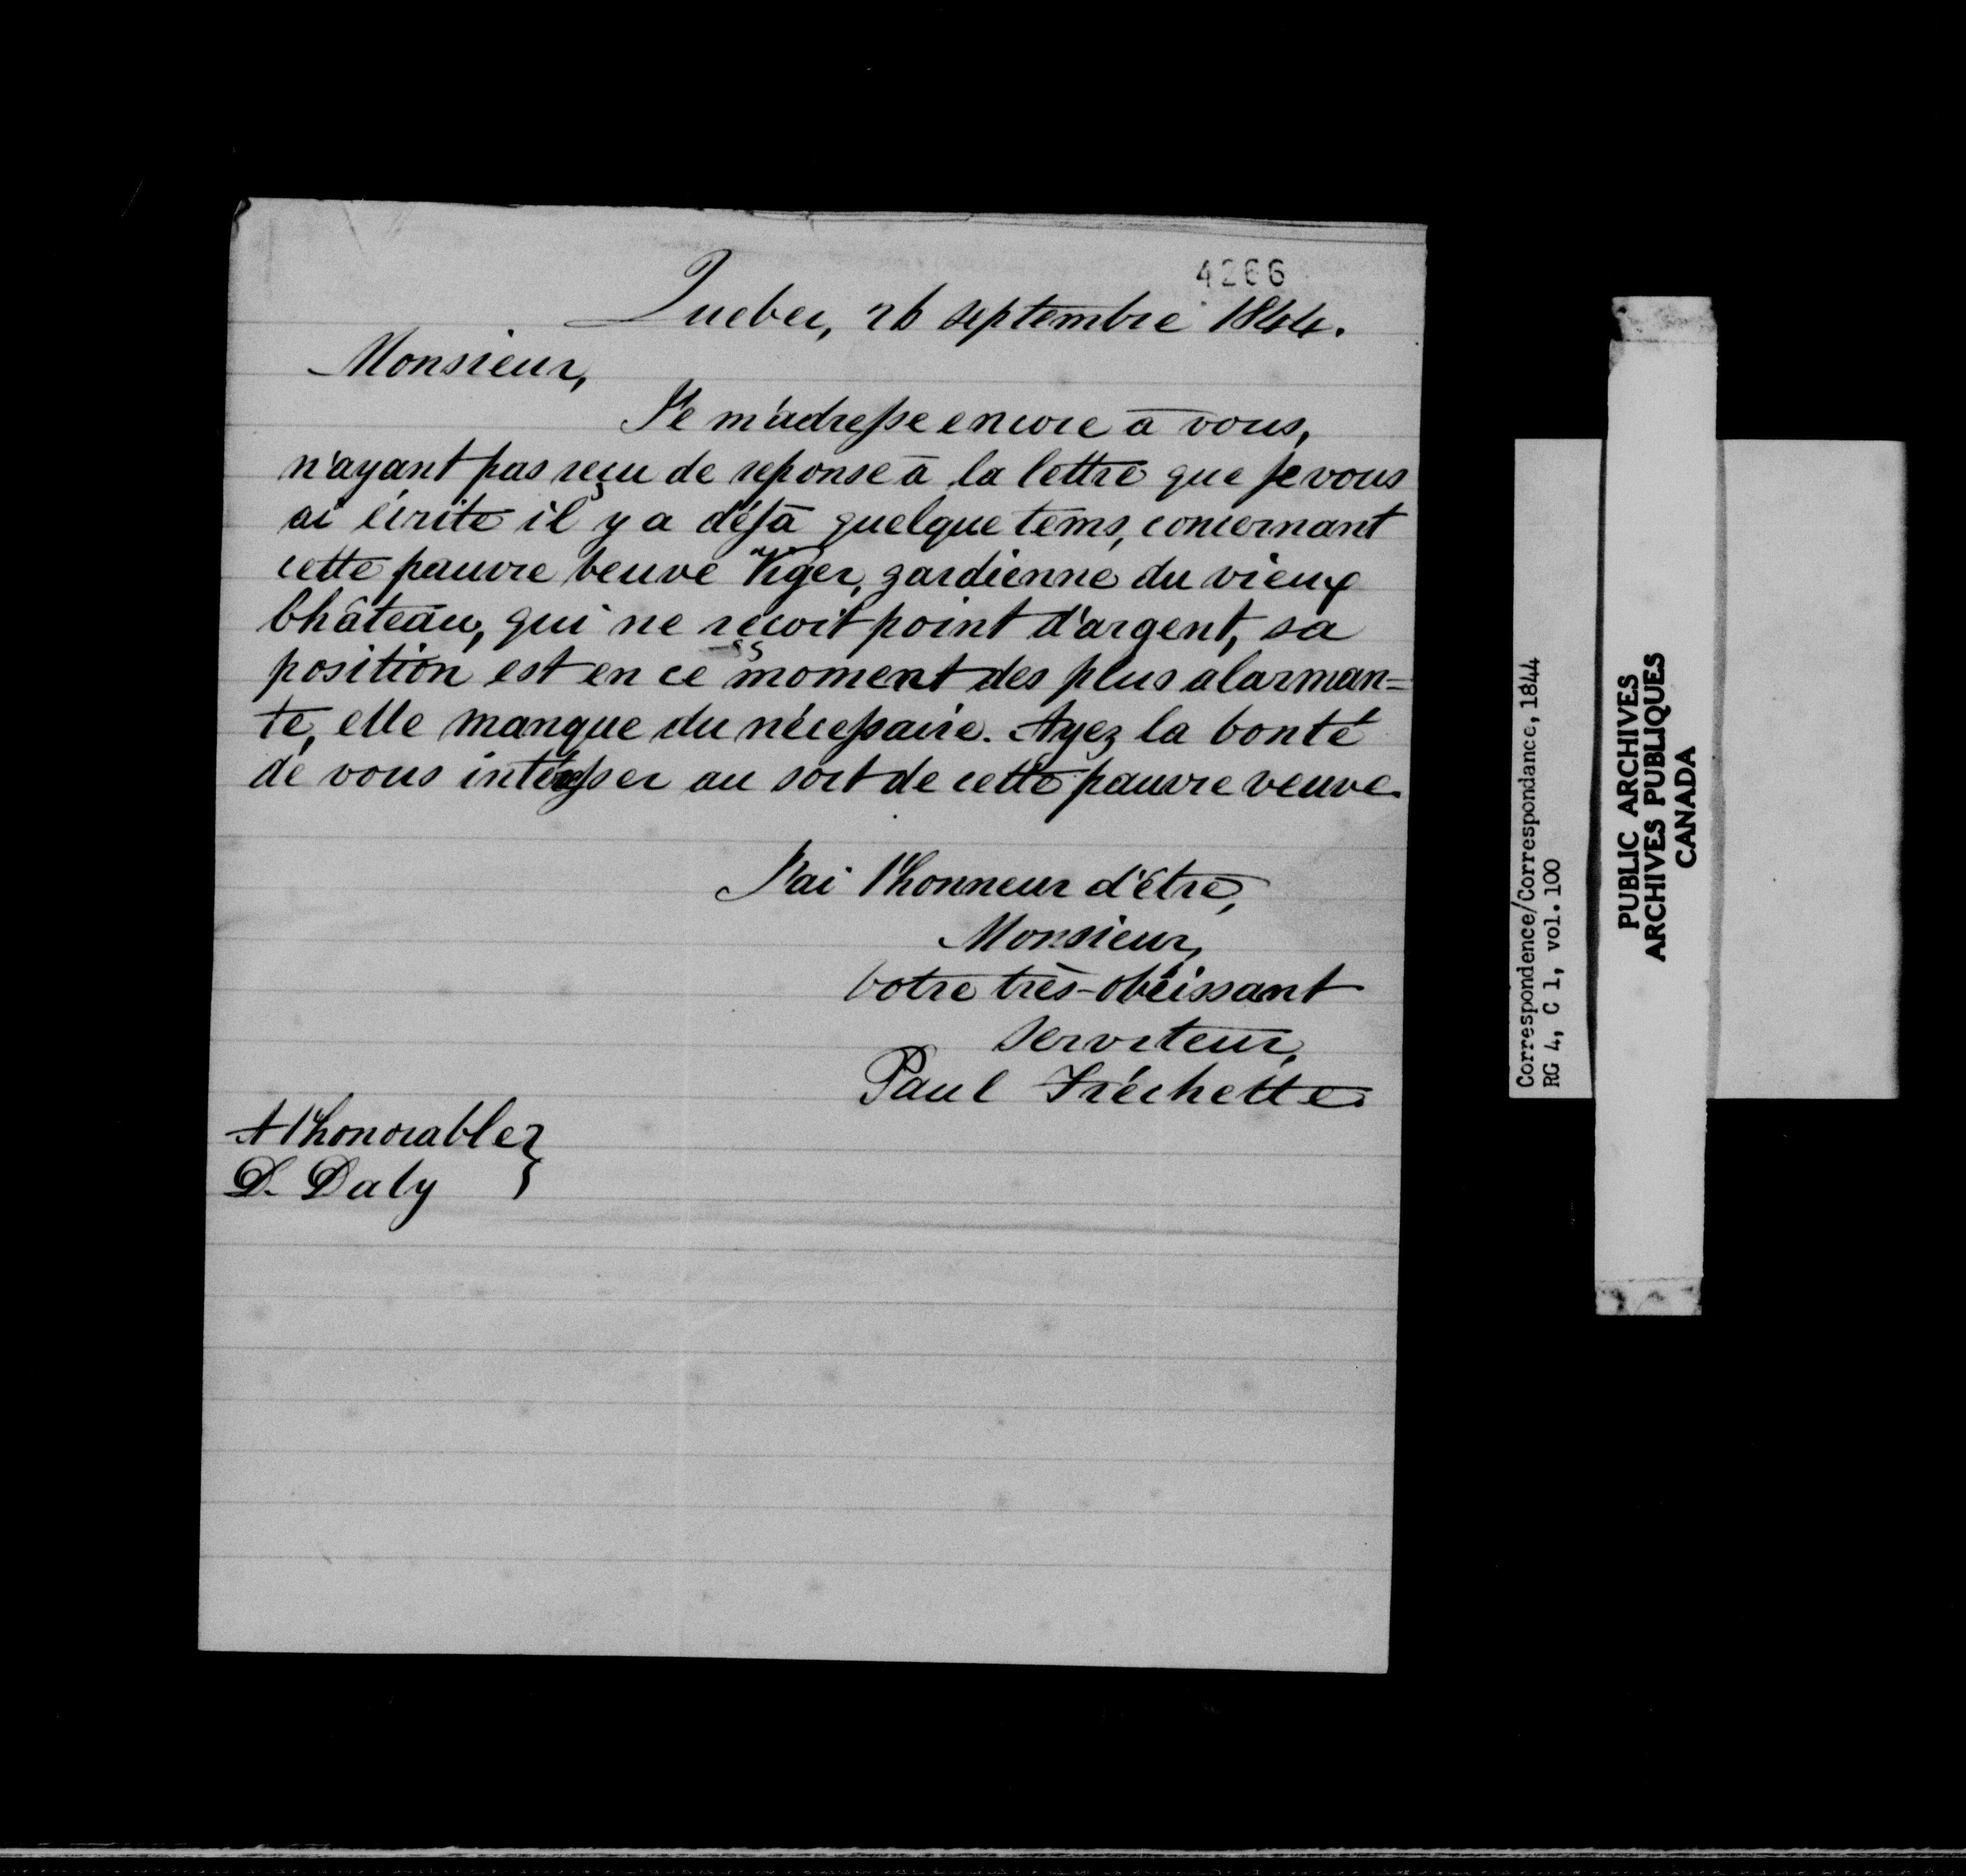 4266
Quebec, 26 septembre 1844.
Monsieur,
Je m'adresse encore à vous,
n'ayant pas reçu de reponse à la lettre que je vous
ai écrite il y a déjà quelque tems, concernant
cette pauvre veuve Viger, gardienne du vieux
Château, qui ne reçoit point d'argent, sa
position est en ce moment des plus alarman=
te, elle manque du nécessaire. Ayez la bonté
de vous intéresser au sort de cette pauvre veuve.
J'ai l'honneur d'être,
Monsieur,
Votre très-obéissant
Serviteur,
Paul Fréchette
A l'honorable }
D. Daly }
Correspondence/Correspondance, 1844
RG 4, C 1, vol. 100
PUBLIC ARCHIVES
ARCHIVES PUBLIQUES
CANADA